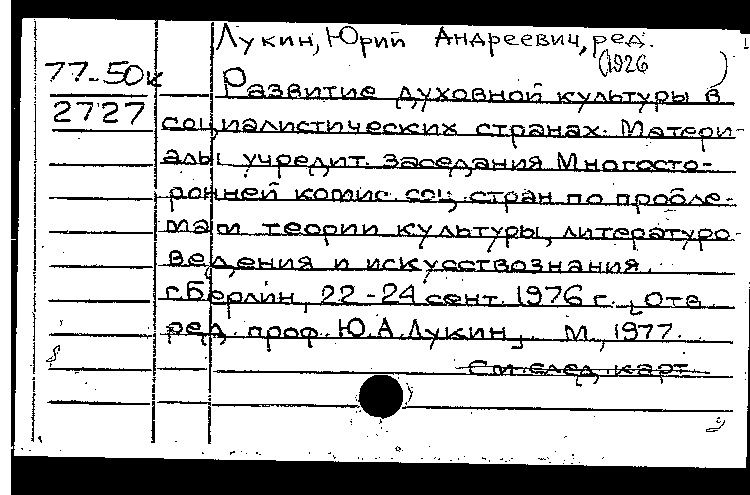 Лукин, Юрий Андреевич, ред.
(1926 )
77-50к
2727
Развитие духовной культуры в
социалистических странах. Матери-
алы учредит. заседания Многосто-
ронней комис. соц. стран по пробле-
мам теории культуры, литературо-
ведения и искусствознания.
г. Берлин, 22-24 сент. 1976 г. [Отв.
ред. проф. Ю.А. Лукин]. М., 1977.
См. след. карт.